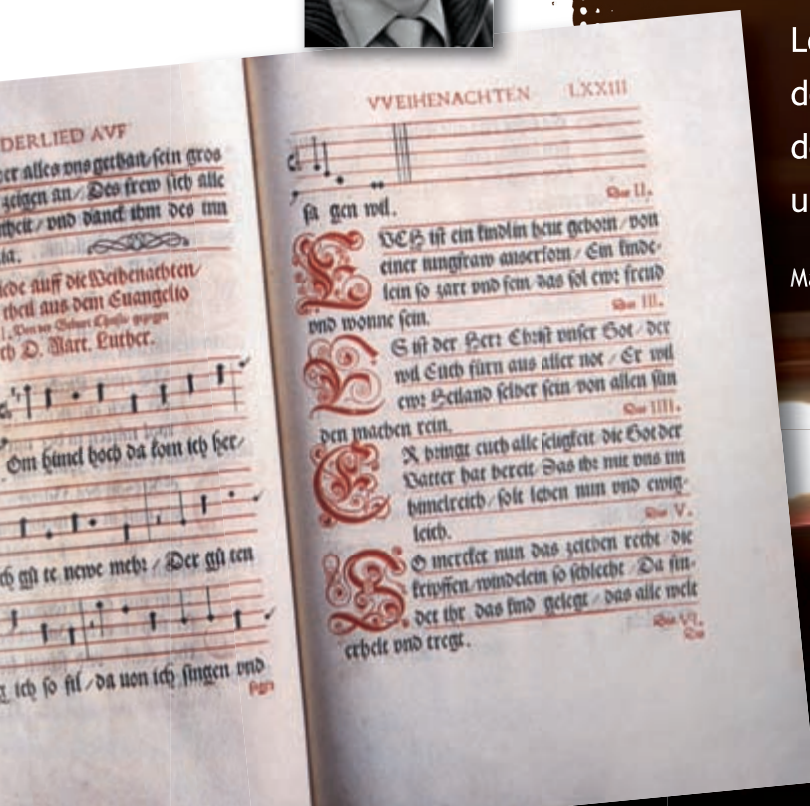 DERLIED AVF
er alles vns gethan/sein gros
zeigen an/ Des frew sich alle
nheit/vnd danck ihm des inn
ia.
iede auff die Weihenachten/
theil aus dem Euangelio
ch D. Mart. Luther.
Om himel hoch da kom ich her/
ch gů te newe mehr/ Der gů ten
ich so fil/da uon ich singen vnd
sagn
VVEIHENACHTEN LXXIII
sa gen wil.
Der II.
EVCH ist ein kindlin heut geborn/von
einer iungfraw auserkorn/ Ein kinde-
lein so zart vnd fein/das sol ewr freud
Der III.
vnd wonne sein.
ES ist der Herr Christ vnser Got/der
wil Euch fürn aus aller not/ Er wil
ewr Heiland selber sein/von allen sün
Der IIII.
den machen rein.
ER bringt euch alle seligkeit/die Got der
Vatter hat bereit/Das ihr mit vns im
himelreich/solt leben nun vnd ewig-
Der V.
leich.
SO mercket nun das zeichen recht/die
krippffen/windelein so schlecht/Da fin-
det ihr das kind gelegt/das alle welt
Der VI.
erhelt vnd tregt.
So
L
d
d
u
Ma